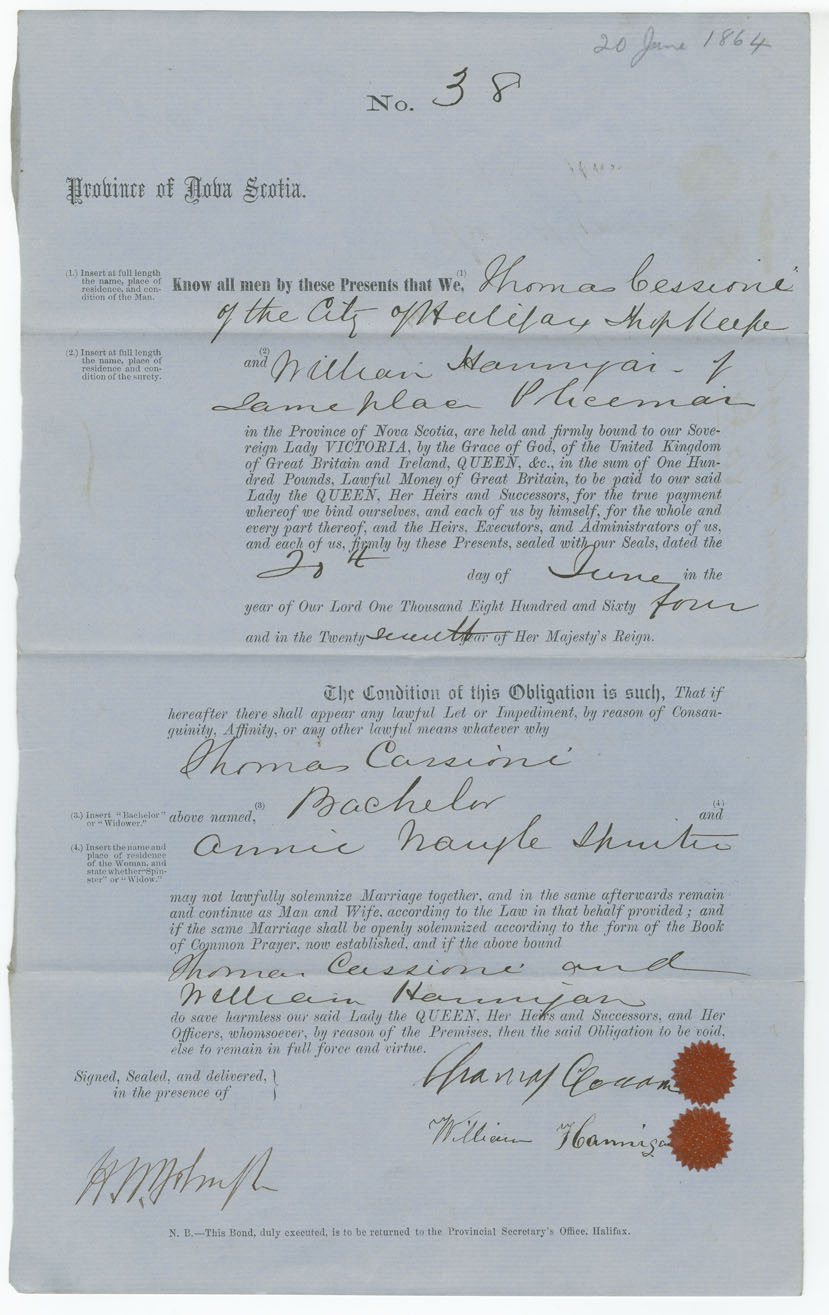 20 June 1864
No. 38
Province of Nova Scotia.
(1.) Insert at full length
the name, place of
residence, and con-
dition of the Man.
Know all men by these Presents that We,(1) Thomas Cessioni
of the City of Halifax Shop Keeper
(2.) Insert at full length
the name, place of
residence and con-
dition of the surety.
and(2) William Hannigan of
same place Policeman
in the Province of Nova Scotia, are held and firmly bound to our Sove-
reign Lady VICTORIA, by the Grace of God, of the United Kingdom
of Great Britain and Ireland, QUEEN, &c., in the sum of One Hun-
dred Pounds, Lawful Money of Great Britain, to be paid to our said
Lady the QUEEN, Her Heirs and Successors, for the true payment
whereof we bind ourselves, and each of us by himself, for the whole and
every part thereof, and the Heirs, Executors, and Administrators of us,
and each of us, firmly by these Presents, sealed with our Seals, dated the
20th day of June in the
year of Our Lord One Thousand Eight Hundred and Sixty four
and in the Twenty seventh year of Her Majesty's Reign.
The Condition of this Obligation is such, That if
hereafter there shall appear any lawful Let or Impediment, by reason of Consan-
guinity, Affinity, or any other lawful means whatever why
Thomas Cassioni
(3.) Insert "Bachelor"
or "Widower."
above named,(3) Bachelor and(4)
(4.) Insert the name and
place of residence
of the Woman, and
state whether "Spin-
ster" or "Widow."
Annie Naugle Spinster
may not lawfully solemnize Marriage together, and in the same afterwards remain
and continue as Man and Wife, according to the Law in that behalf provided; and
if the same Marriage shall be openly solemnized according to the form of the Book
of Common Prayer, now established, and if the above bound
Thomas Cassioni and
William Hannigan
do save harmless our said Lady the QUEEN, Her Heirs and Successors, and Her
Officers, whomsoever, by reason of the Premises, then the said Obligation to be void,
else to remain in full force and virtue.
Signed, Sealed, and delivered,
in the presence of
William Hannigan
N. B.—This Bond, duly executed, is to be returned to the Provincial Secretary's Office, Halifax.